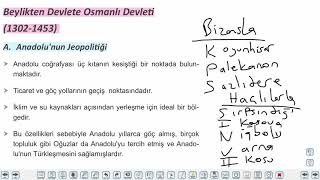 Beylikten Devlete Osmanlı Devleti
(1302-1453)
A. Anadolu'nun Jeopolitiği
Anadolu coğrafyası üç kıtanın kesiştiği bir noktada bulun-
maktadır.
Ticaret ve göç yollarının geçiş noktasındadır.
İklim ve su kaynakları açısından yerleşme için ideal bir böl-
gedir.
Bu özellikleri sebebiyle Anadolu yıllarca göç almış, birçok
topluluk gibi Oğuzlar da Anadolu'yu tercih etmiş ve Anado-
lu'nun Türkleşmesini sağlamışlardır.
Bizansla
Koyunhisar
Palekanon
Sazlıdere
Haçlılarla
Sırpsındığı
I Kosova
Niğbolu
Varna
II Kosv